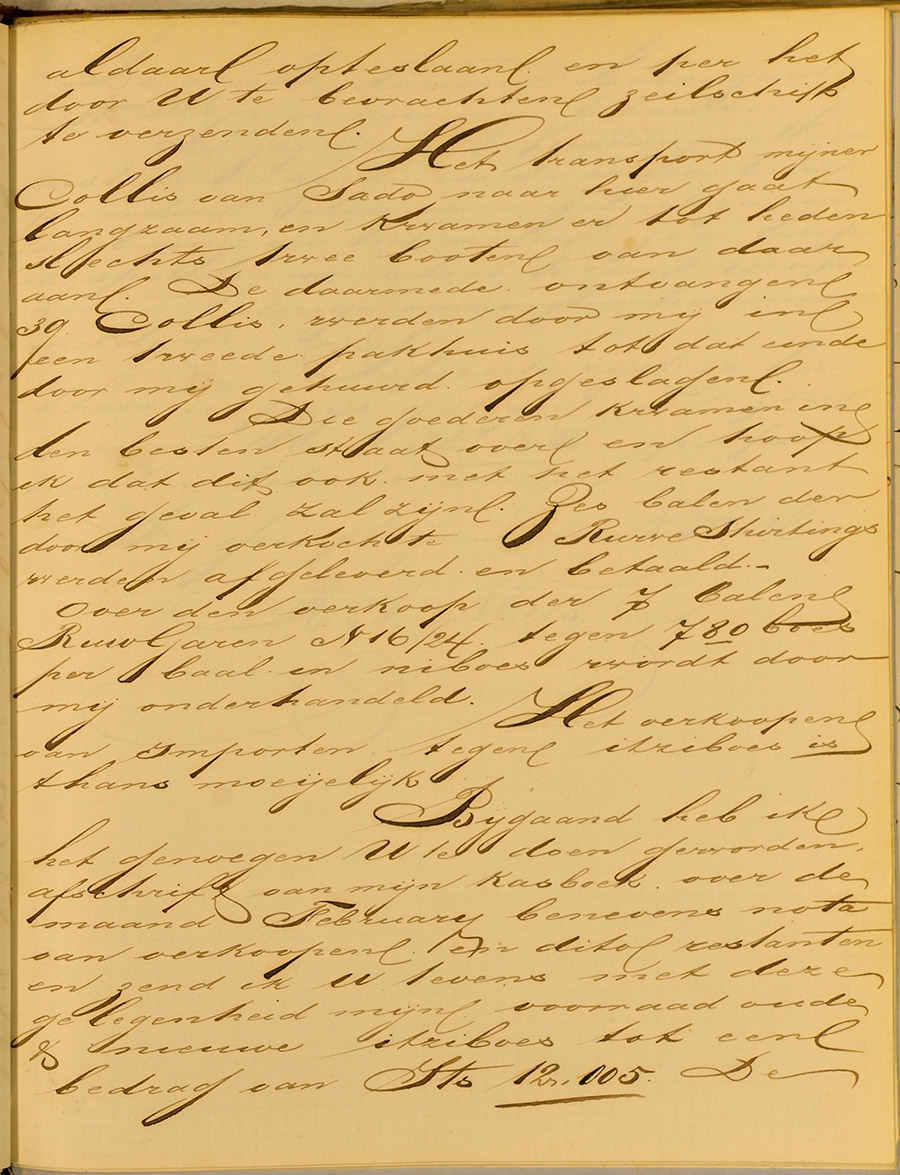 aldaar opteslaan en per het
door U te bevrachten zeilschip
te verzenden.
Het transport mijner
Collis van Sado naar hier gaat
langzaam, en kwamen er tot heden
slechts twee booten van daar
aan. De daarmede ontvangen
39 Collis, werden door mij in
een tweede pakhuis tot dat einde
door mij gehuurd opgeslagen.
Die goederen kwamen in
den besten staat over en hoop
ik dat dit ook met het restant
het geval zal zijn. Zes balen der
door mij verkochte Ruwe Shirtings
werden afgeleverd en betaald.-
Over den verkoop der 7 balen
Ruw Garen N 16/24 tegen 780 boes
per baal in niboes wordt door
mij onderhandeld. Het verkoopen
van Importen tegen itziboes is
thans moeijelijk
Bijgaand heb ik
het genoegen U te doen geworden,
afschrift van mijn kasboek over de
maand February benevens nota
van verkoopen en dito restanten
en zend ik U tevens met deze
gelegenheid mijn voorraad oude
& nieuwe itziboes tot een
bedrag van Sts 12,005. De